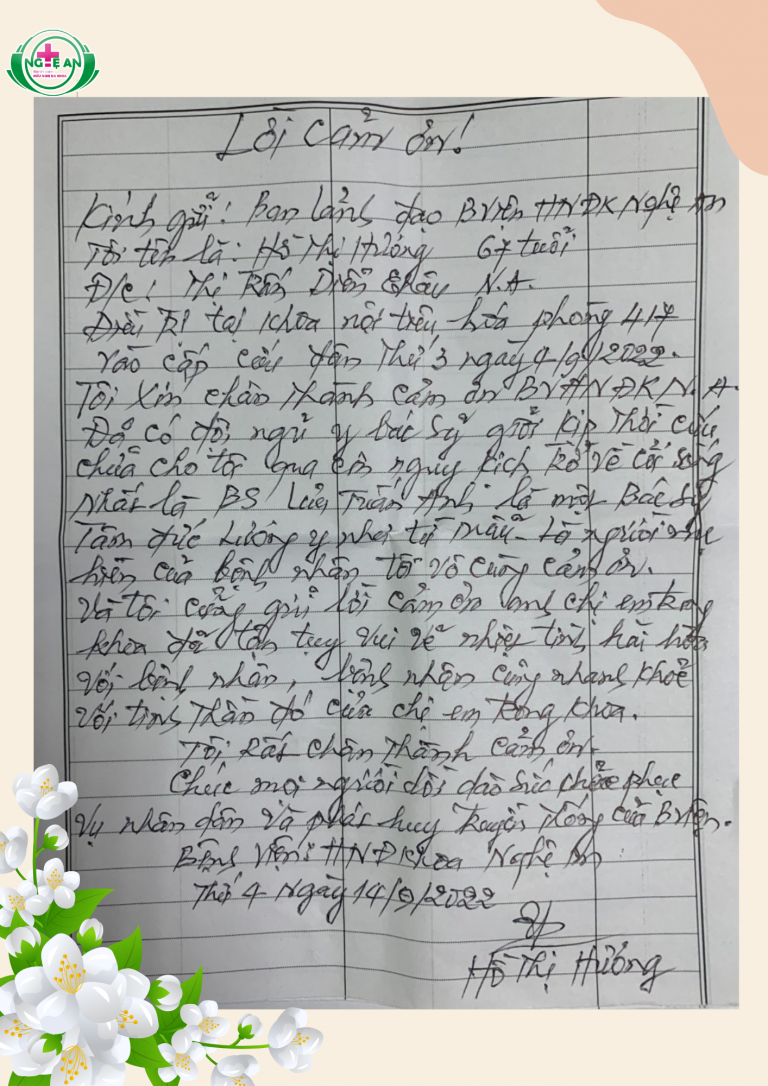 NGHỆ AN
Lời cảm ơn!
Kính gửi: Ban lảnh đạo BViện HNĐK Nghệ An
Tôi tên là: Hồ Thị Hương 67 tuổi
Đ/c: Thị Trấn Diễn Châu N.A.
Điều Trị tại khoa nội tiêu hóa phòng 417
vào cấp cứu đêm Thứ 3 ngày 4/9/2022.
Tôi Xin chân thành cảm ơn BVHNĐK N.A.
Đã có đội ngủ y bác sỹ giỏi kịp thời cứu
chửa cho tôi qua cơn nguy kịch trở về cỏi sống
Nhất là BS Lưu Tuấn Anh là một Bác sỹ
Tâm đức Lương y như từ mẫu - Là người mẹ
hiền của bệnh nhân tôi vô cùng cảm ơn.
Và tôi cũng gửi lời cảm ơn anh chị em trong
khoa đã tận tụy vui vẽ nhiệt tình hài hòa
với bệnh nhân, bệnh nhận cũng nhanh khoẻ
với tinh thần đó của chị em trong khoa.
Tôi Rất chân thành cảm ơn.
Chúc mọi người dồi dào sức khỏe phục
vụ nhân dân và phát huy truyền thống của Bviện.
Bệnh viện: HNĐKhoa Nghệ An
Thứ 4 Ngày 14/9/2022
Hồ Thị Hương